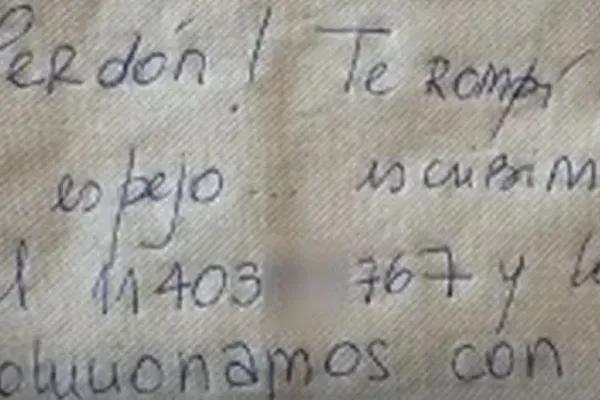 Perdón! Te Rompí
espejo.. escribim
l 11403 767 y l
olucionamos con